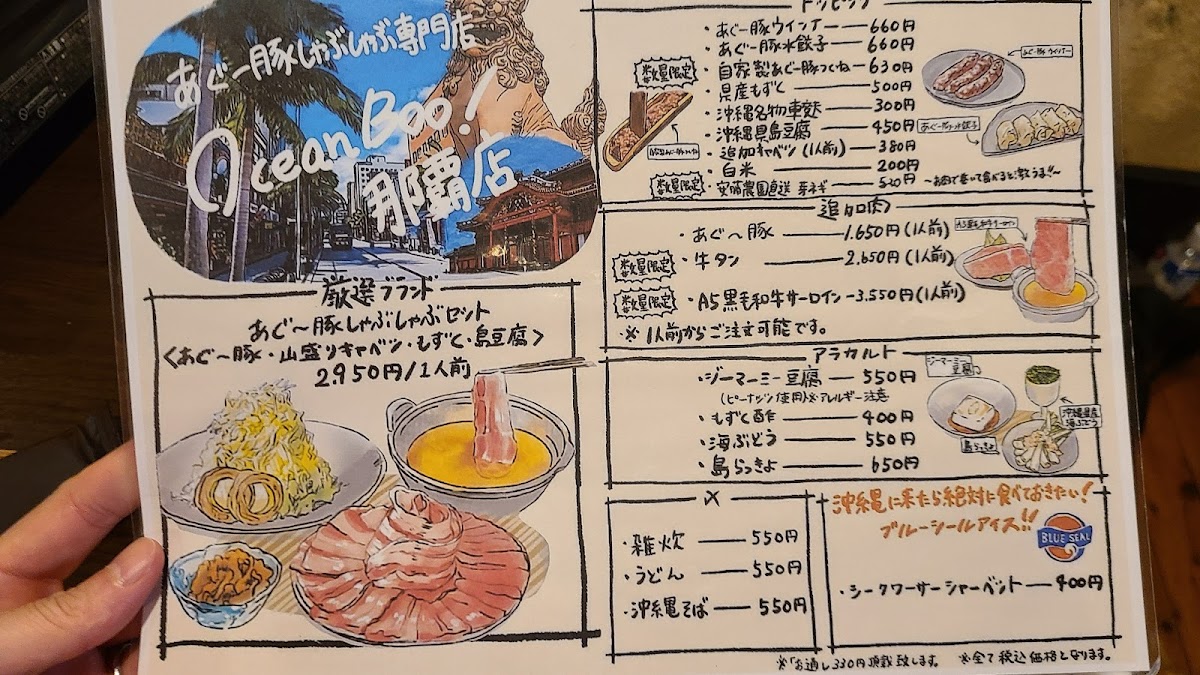 あぐー豚しゃぶしゃぶ専門店
Ocean Boo!
那覇店
厳選ブランド
あぐ〜豚しゃぶしゃぶセット
<あぐ〜豚・山盛りキャベツ・もずく・島豆腐>
2.950円/1人前
トッピング
・あぐー豚ウインナー 660円
・あぐー豚水餃子 660円
数量限定
・自家製あぐー豚つくね 630円
・県産もずく 500円
・沖縄名物車麩 300円
・沖縄県島豆腐 450円
・追加キャベツ(1人前) 380円
・白米 200円
数量限定
・安藤農園直送 芽ネギ 520円
〜お肉で巻いて食べると激うま!!〜
あぐー豚ウインナー
追加肉
・あぐ〜豚 1.650円(1人前)
数量限定
・牛タン 2.650円(1人前)
数量限定
・A5黒毛和牛サーロイン 3.550円(1人前)
※1人前からご注文可能です。
A5黒毛和牛サーロイン
アラカルト
・ジーマーミー豆腐 550円
(ピーナッツ使用)※アレルギー注意
・もずく酢 400円
・海ぶどう 550円
・島らっきょ 650円
ジーマーミー豆腐
島らっきょ
沖縄県産海ぶどう
〆
・雑炊 550円
・うどん 550円
・沖縄そば 550円
沖縄に来たら絶対に食べておきたい!
ブルーシールアイス!!
BLUE SEAL
・シークワーサーシャーベット 400円
※お通し330円頂戴致します。
※全て税込価格となります。